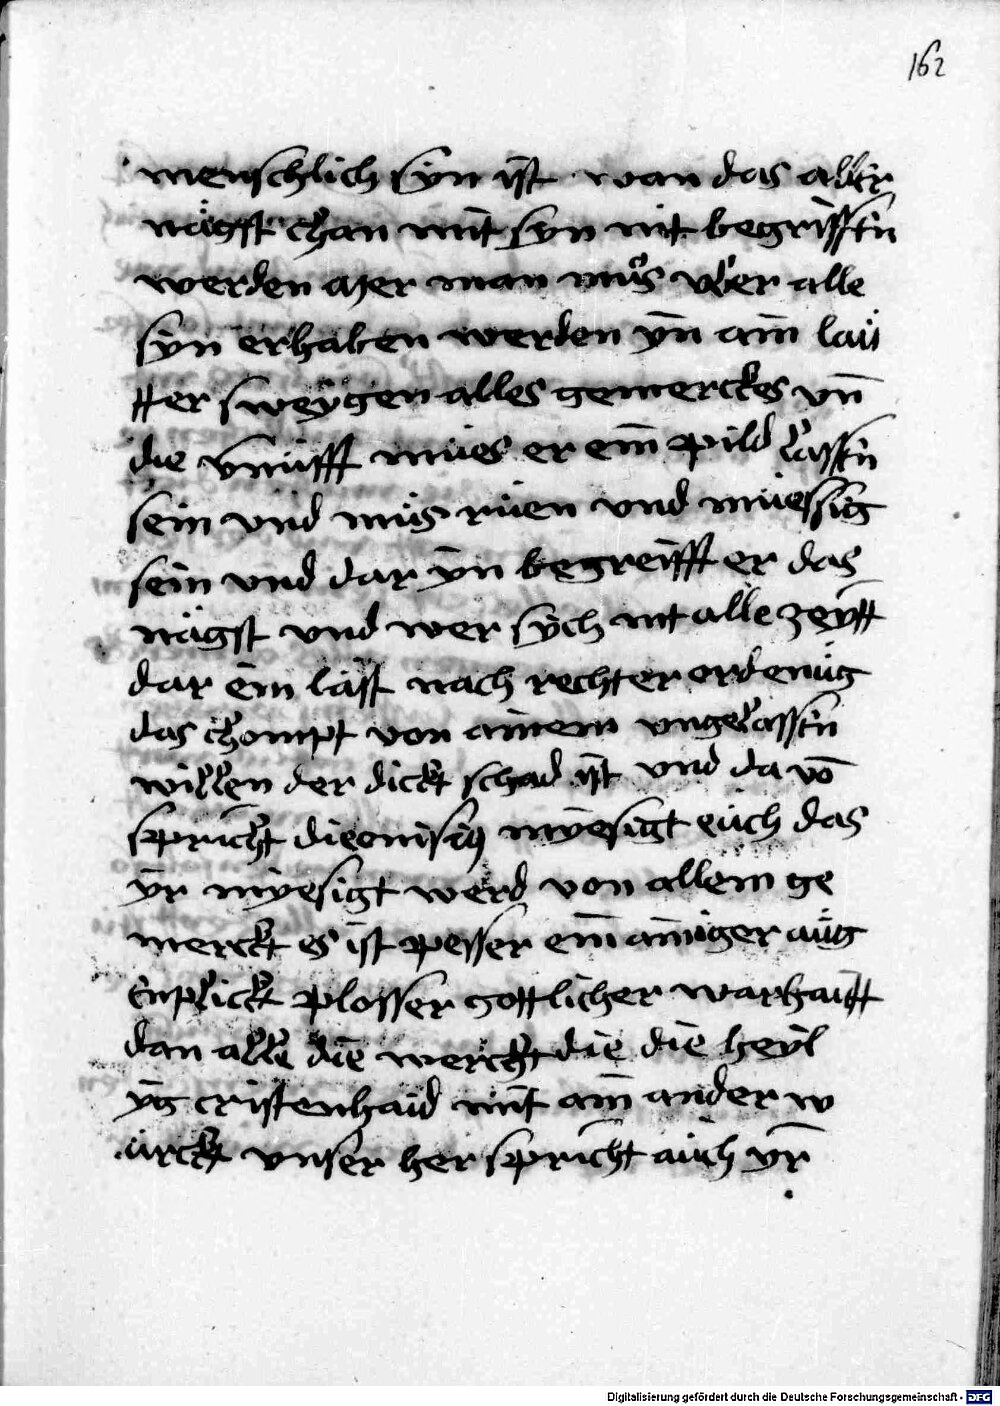 162
menschlich syn ist wan das aller
nägst chan mit syn nit begriffen
werden azer man můs vber alle
syn erhaben werden yn̄ aim̄ laů
tter sweygen alles gemerckes vn̄
die vnuifft můes er eim̄ pild lassen
sein vnd můs růen vnd můessig
sein vnd dar yn̄ begreifft er das
nägst vnd wer sych nit alle zeytt
dar ein̄ läst nach rechter ordenůg
das chompt von ainem vngelassen
willen der dickt schad ist vnd da vō
spricht dieonisius myesigt euch das
yr myesigt werd von allem ge
merckt es ist pesser eim̄ ainiger aůg
enplickt plosser gottlicher warhaitt
dan alle die werckt die die heyl
yg cristenhaid mit aim̄ ander w
ürckt vnser her spricht auch yr
Digitalisierung gefördert durch die Deutsche Forschungsgemeinschaft - DFG